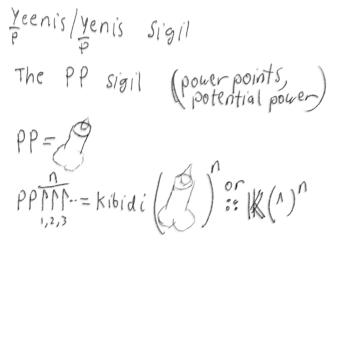 Yeenis/Yenis Sigil
P P
The PP sigil (power points, potential power)
PP =
n
PP↑↑↑.. = kibidi ( )ⁿ or :: 𝕂(^)ⁿ
1,2,3